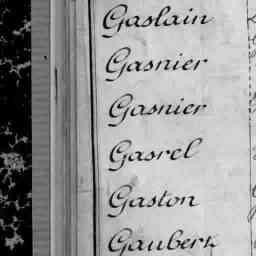 Gaslain
Gasnier
Gasnier
Gasrel
Gaston
Gaubert